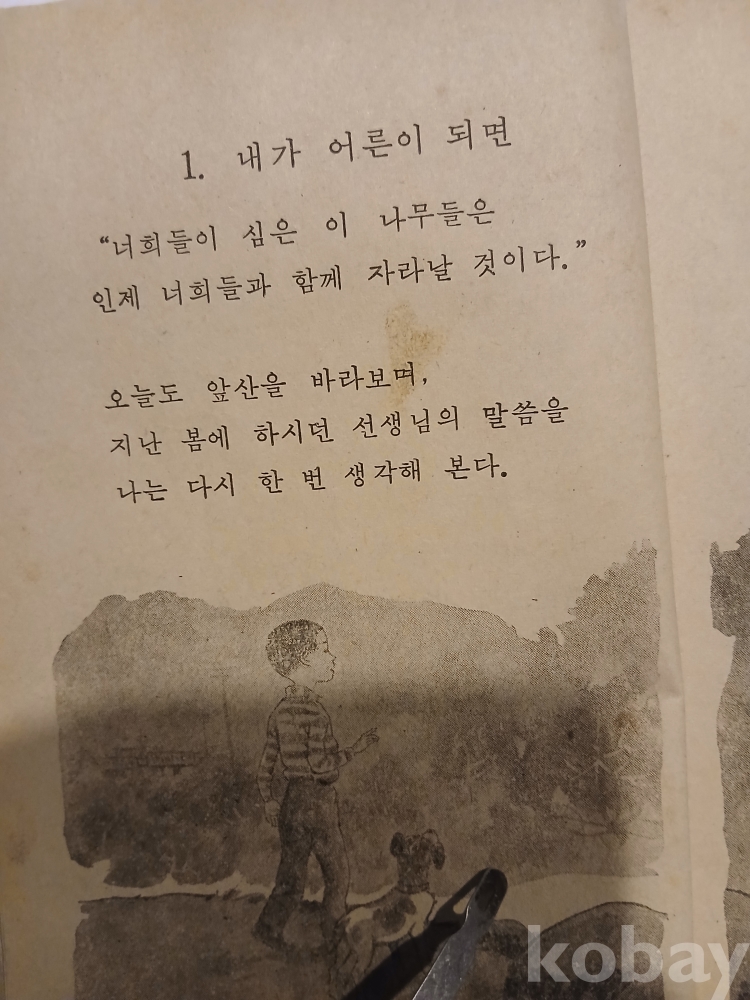 1. 내가 어른이 되면
“너희들이 심은 이 나무들은
인제 너희들과 함께 자라날 것이다.”
오늘도 앞산을 바라보며,
지난 봄에 하시던 선생님의 말씀을
나는 다시 한 번 생각해 본다.
kobay